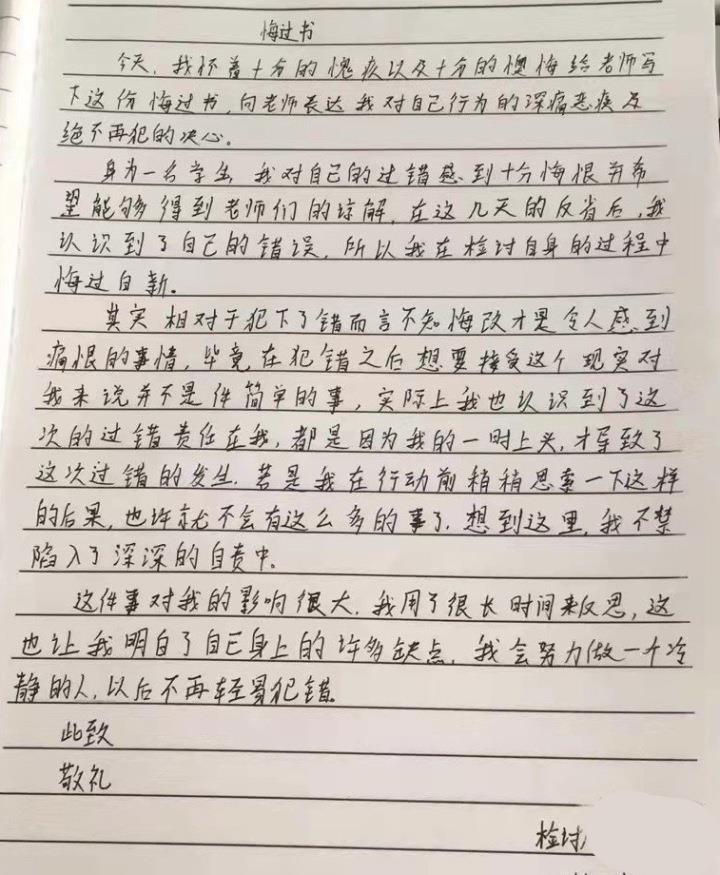 悔过书
今天，我怀着十分的愧疚以及十分的懊悔给老师写
下这份悔过书，向老师表达我对自己行为的深痛恶疾及
绝不再犯的决心。
身为一名学生，我对自己的过错感到十分悔恨并希
望能够得到老师们的谅解，在这几天的反省后，我
认识到了自己的错误，所以我在检讨自身的过程中
悔过自新。
其实相对于犯下了错而言不知悔改才是令人感到
痛恨的事情，毕竟在犯错之后想要接受这个现实对
我来说并不是件简单的事，实际上我也认识到了这
次的过错责任在我，都是因为我的一时上头，才导致了
这次过错的发生．若是我在行动前稍稍思索一下这样
的后果，也许就不会有这么多的事了．想到这里，我不禁
陷入了深深的自责中。
这件事对我的影响很大．我用了很长时间来反思，这
也让我明白了自己身上的许多缺点，我会努力做一个冷
静的人，以后不再轻易犯错．
此致
敬礼
检讨